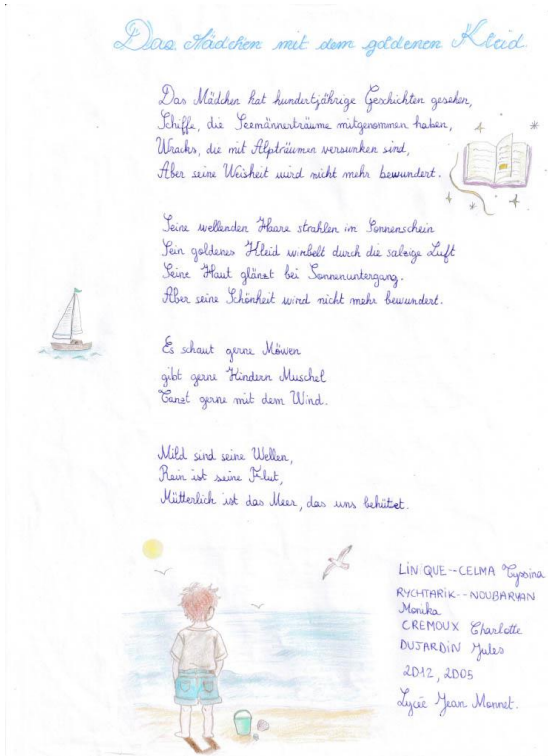 Das Mädchen mit dem goldenen Kleid
Das Mädchen hat hundertjährige Geschichten gesehen,
Schiffe, die Seemännerträume mitgenommen haben,
Wracks, die mit Alpträumen versunken sind,
Aber seine Weisheit wird nicht mehr bewundert.
Seine wellenden Haare strahlen im Sonnenschein
Sein goldenes Kleid wirbelt durch die salzige Luft
Seine Haut glänzt bei Sonnenuntergang.
Aber seine Schönheit wird nicht mehr bewundert.
Es schaut gerne Möwen
gibt gerne Kindern Muschel
Tanzt gerne mit dem Wind.
Mild sind seine Wellen,
Rein ist seine Flut,
Mütterlich ist das Meer, das uns behütet.
LINQUE--CELMA
RYCHTARIK--NOUBARYAN
Monika
CREMOUX Charlotte
DUJARDIN Jules
2D12, 2D05
Lycée Jean Monnet.